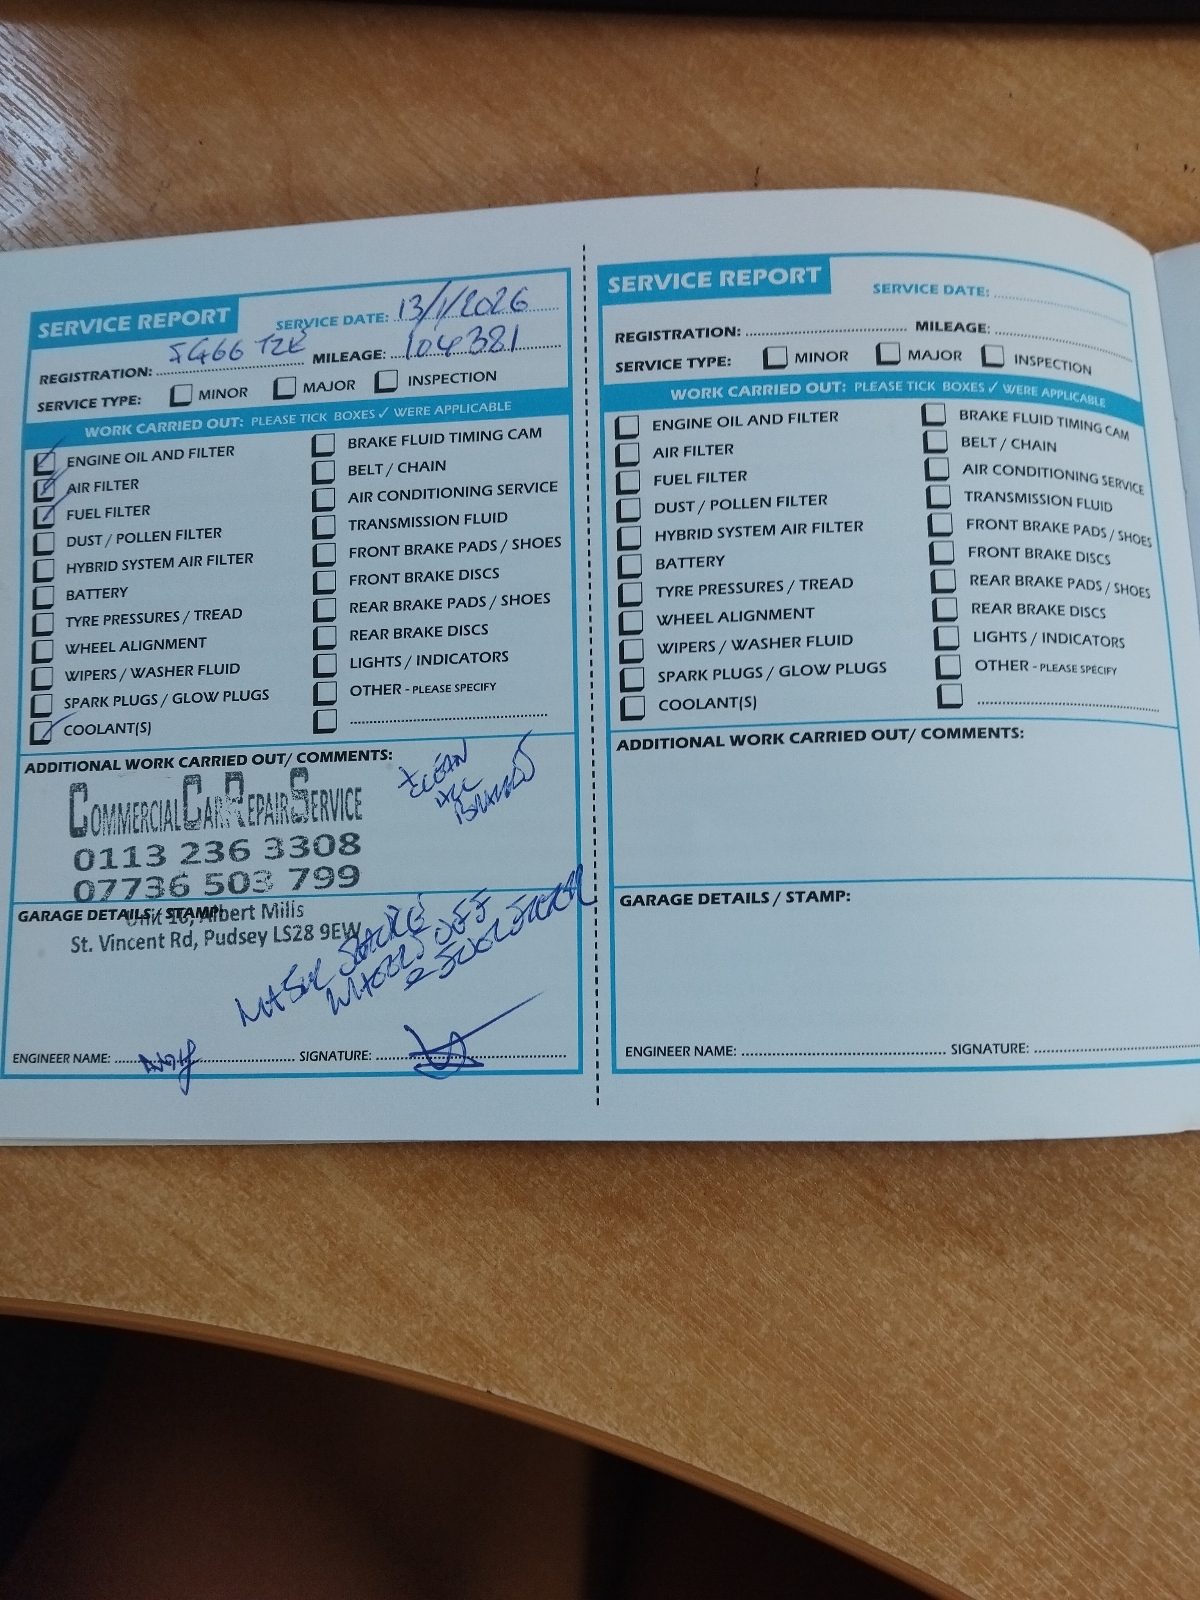 SERVICE REPORT
SERVICE DATE: 13/1/2026
REGISTRATION: MILEAGE: 104381
SERVICE TYPE: MINOR MAJOR INSPECTION
WORK CARRIED OUT: PLEASE TICK BOXES ✓ WERE APPLICABLE
ENGINE OIL AND FILTER
AIR FILTER
FUEL FILTER
DUST / POLLEN FILTER
HYBRID SYSTEM AIR FILTER
BATTERY
TYRE PRESSURES / TREAD
WHEEL ALIGNMENT
WIPERS / WASHER FLUID
SPARK PLUGS / GLOW PLUGS
COOLANT(S)
BRAKE FLUID TIMING CAM
BELT / CHAIN
AIR CONDITIONING SERVICE
TRANSMISSION FLUID
FRONT BRAKE PADS / SHOES
FRONT BRAKE DISCS
REAR BRAKE PADS / SHOES
REAR BRAKE DISCS
LIGHTS / INDICATORS
OTHER - PLEASE SPECIFY
ADDITIONAL WORK CARRIED OUT/ COMMENTS:
CLEAN
COMMERCIAL CAR REPAIR SERVICE
0113 236 3308
07736 503 799
GARAGE DETAILS / STAMP:
Unit 16, Albert Mills
St. Vincent Rd, Pudsey LS28 9EW
WHEELS OFF
ENGINEER NAME: SIGNATURE:
SERVICE REPORT
SERVICE DATE:
REGISTRATION: MILEAGE:
SERVICE TYPE: MINOR MAJOR INSPECTION
WORK CARRIED OUT: PLEASE TICK BOXES ✓ WERE APPLICABLE
ENGINE OIL AND FILTER
AIR FILTER
FUEL FILTER
DUST / POLLEN FILTER
HYBRID SYSTEM AIR FILTER
BATTERY
TYRE PRESSURES / TREAD
WHEEL ALIGNMENT
WIPERS / WASHER FLUID
SPARK PLUGS / GLOW PLUGS
COOLANT(S)
BRAKE FLUID TIMING CAM
BELT / CHAIN
AIR CONDITIONING SERVICE
TRANSMISSION FLUID
FRONT BRAKE PADS / SHOES
FRONT BRAKE DISCS
REAR BRAKE PADS / SHOES
REAR BRAKE DISCS
LIGHTS / INDICATORS
OTHER - PLEASE SPECIFY
ADDITIONAL WORK CARRIED OUT/ COMMENTS:
GARAGE DETAILS / STAMP:
ENGINEER NAME: SIGNATURE: